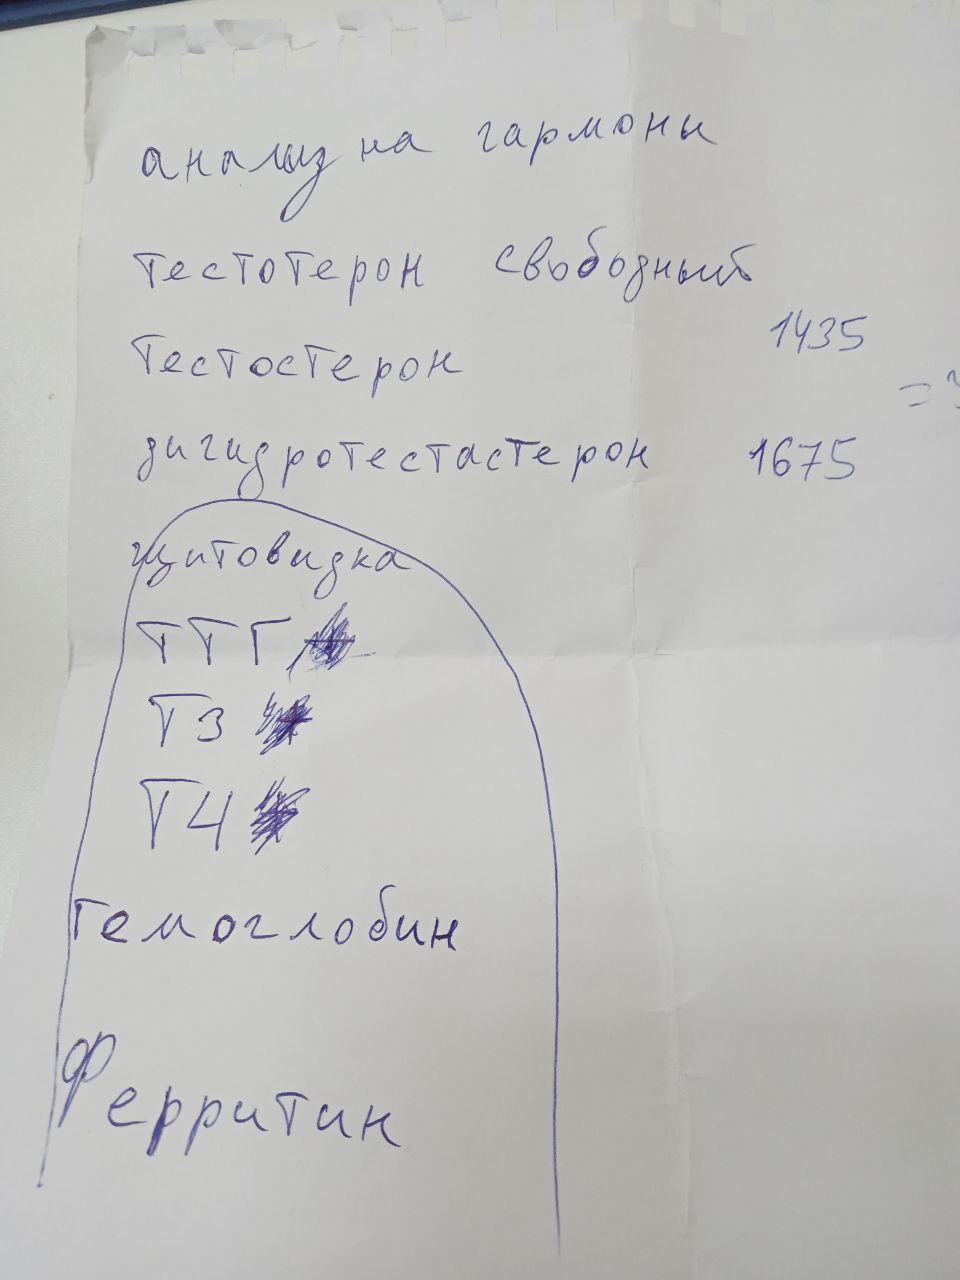 анализ на гармоны
тестотерон свободный
1435
Тестостерон
=
дигидротестастерон 1675
щитовидка
ТТГ
Т3
Т4
Гемоглобин
Ферритин